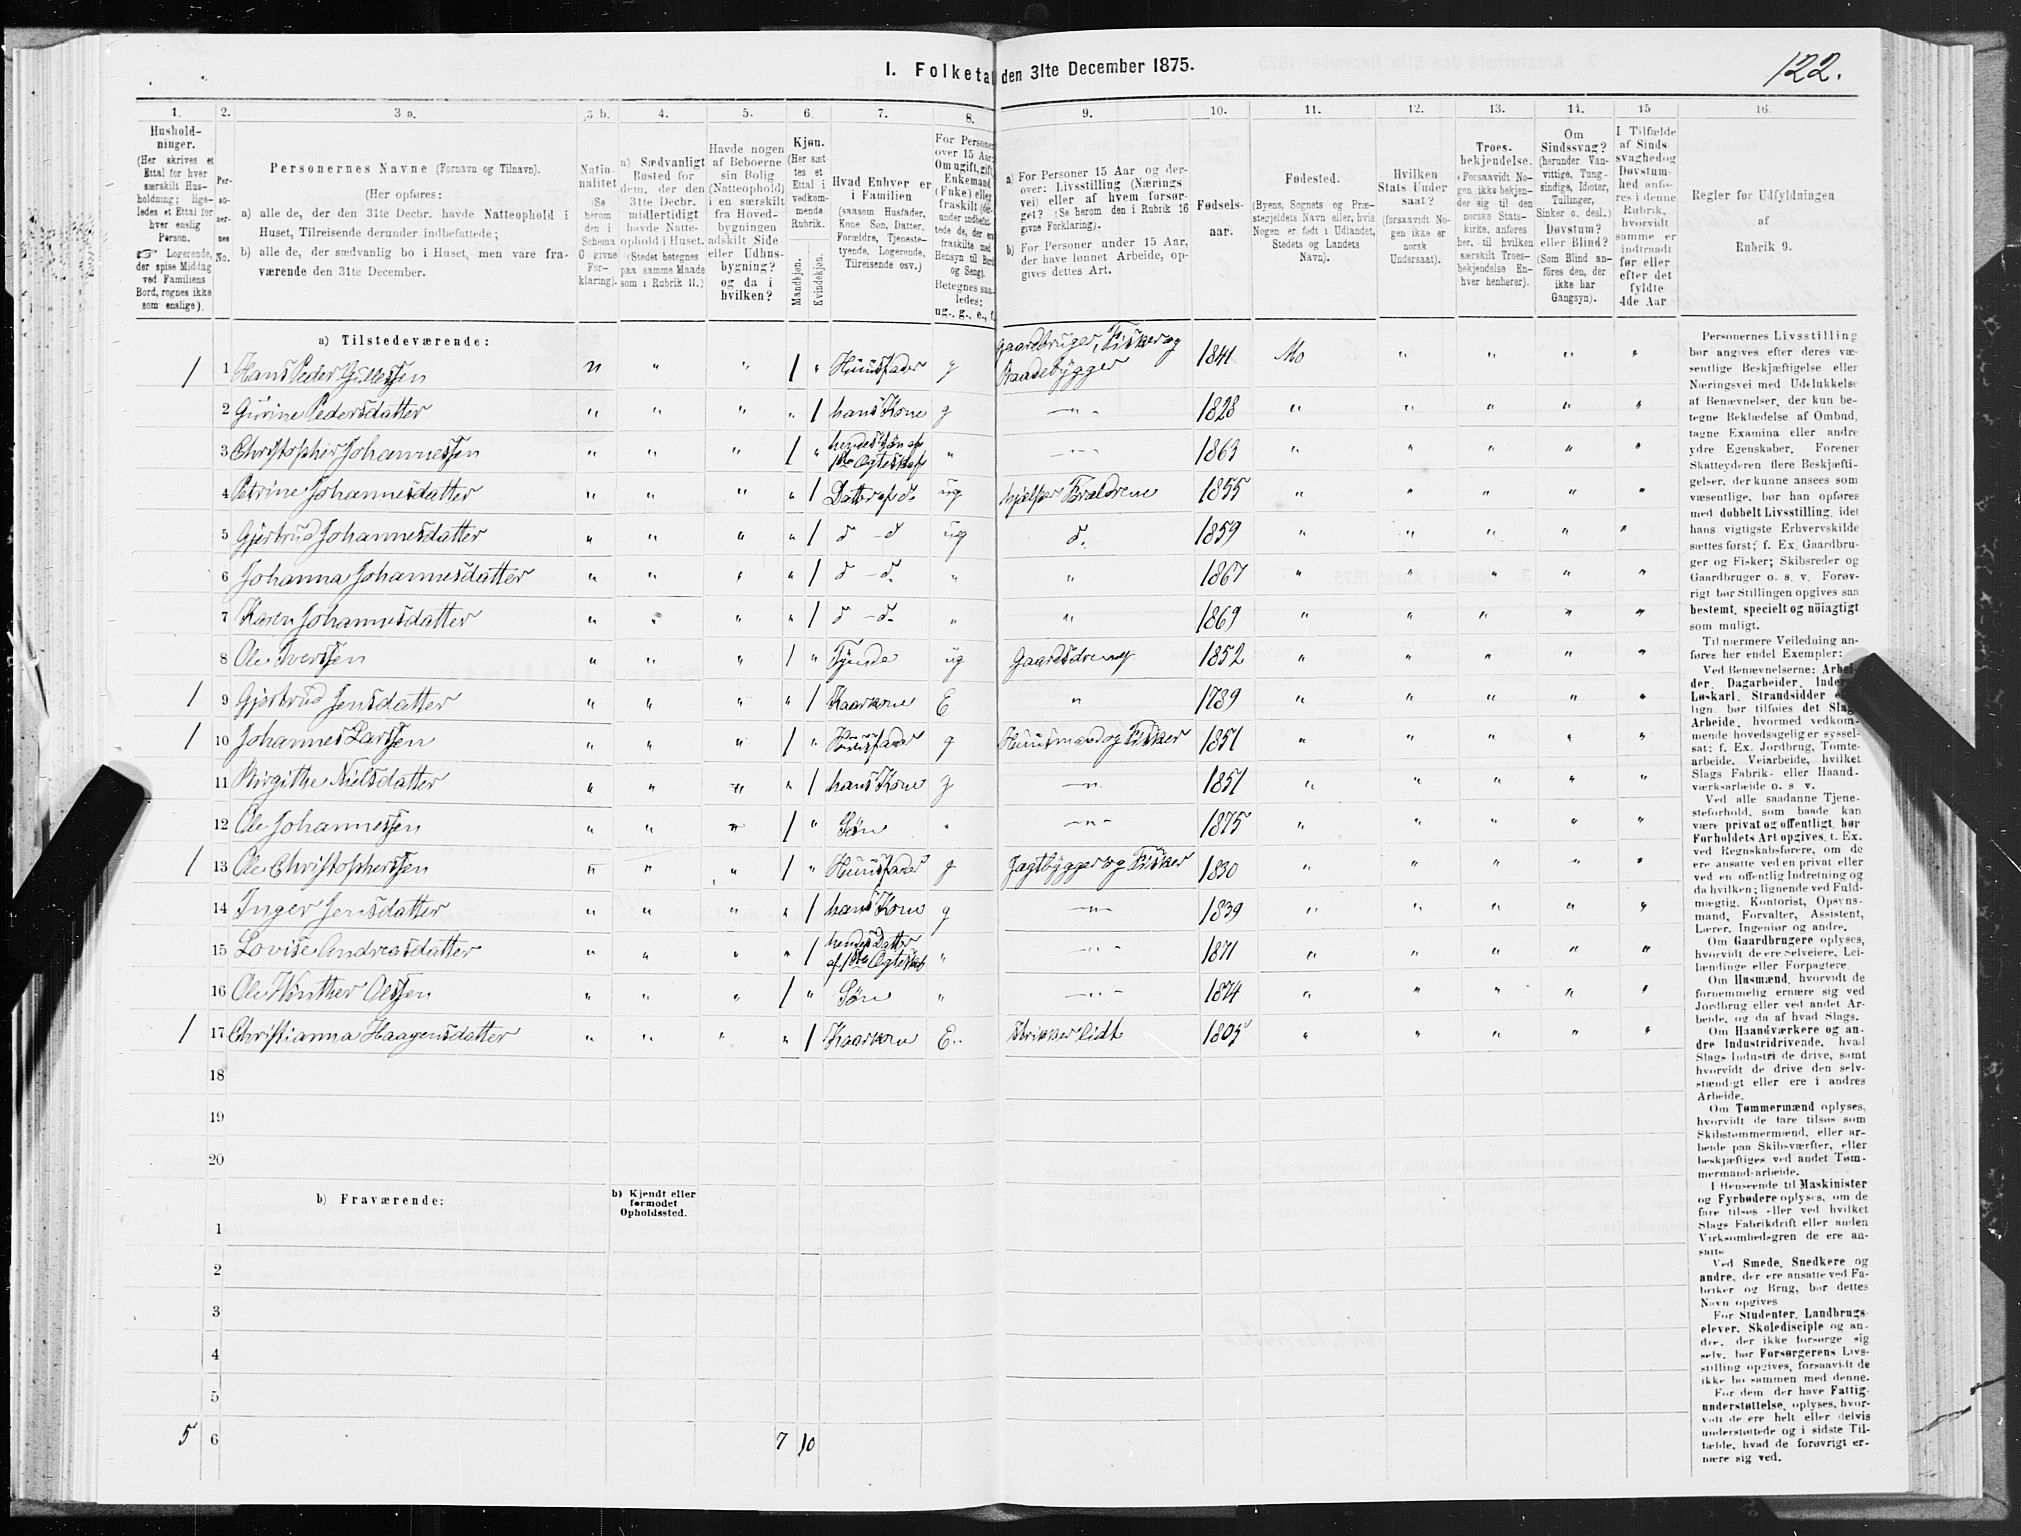 I. Folketal den 31te December 1875.
122.
1. 2. 3 a. 3 b. 4. 5. 6. 7. 8. 9. 10. 11. 12. 13. 14. 15 16.
Hushold-
ninger.
(Her skrives et
Ettal for hver
særskilt Hus-
holdning; lige-
ledes et Ettal for
hver enslig
Person.
☞ Logerende,
der spise Middag
ved Familiens
Bord, regnes ikke
som enslige).
Per-
so-
ner-
nes
No.
Personernes Navne (Fornavn og Tilnavn).
(Her opføres:
a) alle de, der den 31te Decbr. havde Natteophold i
Huset, Tilreisende derunder indbefattede;
b) alle de, der sædvanlig bo i Huset, men vare fra-
værende den 31te December.
Natio-
nalitet
(Se
herom
den i
Schema
G givne
For-
klaring).
a) Sædvanligt
Bosted for
dem, der den
31te Decbr.
midlertidigt
havde Natte-
ophold i Huset.
(Stedet betegnes
paa samme Maade
som i Rubrik 11.)
Havde nogen
af Beboerne
sin Bolig
(Natteophold)
i en særskilt
fra Hoved-
bygningen
adskilt Side-
eller Udhus-
bygning?
og da i
hvilken?
Kjøn.
(Her sæt-
tes et
Ettal i
vedkom-
mende
Rubrik.
Mandkjøn.
Kvindekjøn.
Hvad Enhver er
i Familien
(saasom Husfader,
Kone, Søn, Datter,
Forældre, Tjeneste-
tyende, Logerende,
Tilreisende osv.)
For Personer
over 15 Aar:
Om ugift, gift,
Enkemand
(Enke) eller
fraskilt (der-
under indbefat-
tede de, der ere
fraskilte med
Hensyn til Bord
og Seng).
Betegnes saa-
ledes:
ug., g., e., f.
a) For Personer 15 Aar og der-
over: Livsstilling (Nærings-
vei) eller af hvem forsør-
get? (Se herom den i Rubrik 16
givne Forklaring).
b) For Personer under 15 Aar,
der have lønnet Arbeide, op-
gives dettes Art.
Fødsels-
aar.
Fødested.
(Byens, Sognets og Præ-
stegjeldets Navn eller, hvis
Nogen er født i Udlandet,
Stedets og Landets
Navn).
Hvilken
Stats Under-
saat?
(forsaavidt No-
gen ikke er
norsk
Undersaat).
Troes-
bekjendelse.
(Forsaavidt No-
gen ikke bekjen-
der sig til den
norske Stats-
kirke, anføres
her, til hvilken
særskilt Troes-
bekjendelse En-
hver henhører).
Om
Sindssvag?
(herunder Van-
vittige, Tung-
sindige, Idioter,
Tullinger,
Sinker o. desl.)
Døvstum?
eller Blind?
(Som Blind an-
føres den, der
ikke har
Gangsyn).
I Tilfælde
af Sinds-
svaghed og
Døvstum-
hed anfø-
res i denne
Rubrik,
hvorvidt
samme er
indtraadt
før eller
efter det
fyldte
4de Aar
Regler for Udfyldningen
af
Rubrik 9.
a) Tilstedeværende:
1 1 Hans Peder Gjillessen n " " 1 " Huusfader g Gaardbruger, Fisker og Baadebÿgger 1841 Mo " " " "
2 Gurine Pedersdatter " " " " 1 hans Kone g —"— 1828 " " " " "
3 Christopher Johannessen " " " 1 " hendes Søn af 1ste Ægteskab " —"— 1863 " " " " "
4 Petrine Johannesdatter " " " " 1 Datter af d. ug hjælper Forældrene 1855 " " " " "
5 Gjertrud Johannesdatter " " " " 1 d – d ug d. 1859 " " " " "
6 Johanna Johannesdatter " " " " 1 d – d. " " 1867 " " " " "
7 Karen Johannesdatter " " " " 1 d – d. " " 1869 " " " " "
8 Ole Iverssen " " " 1 " Tÿende ug Gaardsdreng 1852 " " " " "
1 9 Gjertrud Jensdatter " " " " 1 Kaarkone E " 1789 " " " " "
1 10 Johannes Larssen " " " 1 " Huusfader g Huusmand og Fisker 1851 " " " " "
11 Birgithe Nielsdatter " " " " 1 hans Kone g —"— 1851 " " " " "
12 Ole Johannessen " " " 1 " Søn " —"— 1875 " " " " "
1 13 Ole Christophersen " " " 1 " Huusfader g Jagtbÿgger og Fisker 1830 " " " " "
14 Inger Jensdatter " " " " 1 hans Kone g —"— 1839 " " " " "
15 Lovise Andreasdatter " " " " 1 hendes Datter af 1ste Ægteskab " —"— 1871 " " " " "
16 Ole Winther Olssen " " " 1 " Søn " —"— 1874 " " " " "
1 17 Christianna Haagensdatter " " " " 1 Kaarkone E. strikker lidt 1805 " " " " "
18
19
20
b) Fraværende:
b) Kjendt eller
formodet
Opholdssted.
1
2
3
4
5
5 6 7 10
Personernes Livsstilling
bør angives efter deres væ-
sentlige Beskjæftigelse eller
Næringsvei med Udelukkelse
af Benævnelser, der kun be-
tegne Beklædelse af Ombud,
tagne Examina eller andre
ydre Egenskaber. Forener
Skatteyderen flere Beskjæfti-
gelser, der kunne ansees som
væsentlige, bør han opføres
med dobbelt Livsstilling, idet
hans vigtigste Erhvervskilde
sættes først; f. Ex. Gaardbru-
ger og Fisker; Skibsreder og
Gaardbruger o. s. v. Forøv-
rigt bør Stillingen opgives saa
bestemt, specielt og nöiagtigt
som muligt.
Til nærmere Veiledning an-
føres her endel Exempler:
Ved Benævnelserne: Arbei-
der, Dagarbeider, Inder
Løskarl, Strandsidder
lign. bør tilføies det Slag
Arbeide, hvormed vedkom-
mende hovedsagelig er syssel-
sat; f. Ex. Jordbrug, Tomte-
arbeide, Veiarbeide, hvilket
Slags Fabrik- eller Haand-
værksarbeide o. s v.
Ved alle saadanne Tjene-
steforhold, som baade kan
være privat og offentligt, bør
Forholdets Art opgives, t. Ex.
ved Regnskabsførere, om de
ere ansatte ved en privat eller
ved en offentlig Indretning og
da hvilken; lignende ved Fuld-
mægtig, Kontorist, Opsyns-
mand, Forvalter, Assistent,
Lærer, Ingeniør og andre.
Om Gaardbrugere oplyses,
hvorvidt de ere Selveiere, Lei-
lændinge eller Forpagtere.
Om Husmænd, hvorvidt de
fornemmelig ernære sig ved
Jordbrug eller ved andet Ar-
beide, og da af hvad Slags.
Om Haandværkere og an-
dre Industridrivende, hvad
Slags Industri de drive, samt
hvorvidt de drive den selv-
stændigt eller ere i andres
Arbeide.
Om Tømmermænd oplyses,
hvorvidt de fare tilsøs som
Skibstømmermænd, eller ar-
beide paa Skibsværfter, eller
beskjæftiges ved andet Tøm-
mermandarbeide.
I Henseende til Maskinister
og Fyrbødere oplyses, om de
fare tilsøs eller ved hvilket
Slags Fabrikdrift eller anden
Virksomhedsgren de ere an-
satte
Ved Smede, Snedkere og
andre, der ere ansatte ved Fa-
briker og Brug, bør dettes
Navn opgives
For Studenter, Landbrugs-
elever, Skoledisciple og an-
dre, der ikke forsørge sig
selv, bør Forsørgerens Livs-
stilling opgives, forsaavidt de
ikke bo sammen med denne.
For dem, der have Fattig-
understøttelse, oplyses, hvor-
vidt de ere helt eller delvis
understøttede og i sidste Til-
fælde, hvad de forøvrigt er-
nære sig ved.